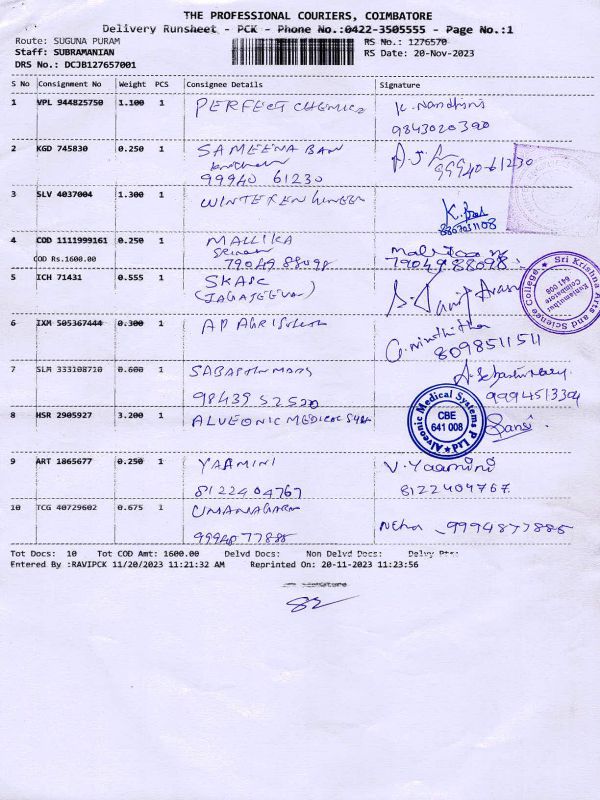 THE PROFESSIONAL COURIERS, COIMBATORE
Delivery Runsheet - PCK - Phone No.:0422-3505555 - Page No.:1
Route: SUGUNA PURAM
RS No.: 1276570
Staff: SUBRAMANIAN
RS Date: 20-Nov-2023
DRS No.: DCJB127657001
S No Consignment No Weight PCS Consignee Details Signature
1 VPL 944825750 1.100 1 PERFECT K. Nandhini
9843020390
2 KGD 745830 0.250 1 SAMEENA BAN
99940 61230 99940 61230
3 SLV 4037004 1.300 1
8807031108
4 COD 1111999161 0.250 1 MALLIKA
COD Rs.1600.00
79049 88098 79049 88098
5 ICH 71431 0.555 1 SKASC
Sri Krishna Arts and Science College
Coimbatore
641 008
6 IXM 505367444 0.300 1
8098511511
7 SLM 333108710 0.600 1
98439 52520
8 HSR 2905927 3.200 1 ALVEONIC MEDICAL
Alveonic Medical Systems P Ltd
CBE
641 008
9 ART 1865677 0.250 1 YAAMINI V. Yaamini
8122404767 8122404767
10 TCG 40729602 0.675 1 Neha 9994877885
Tot Docs: 10 Tot COD Amt: 1600.00 Delvd Docs: Non Delvd Docs: Delvy Pts:
Entered By :RAVIPCK 11/20/2023 11:21:32 AM Reprinted On: 20-11-2023 11:23:56
Signature